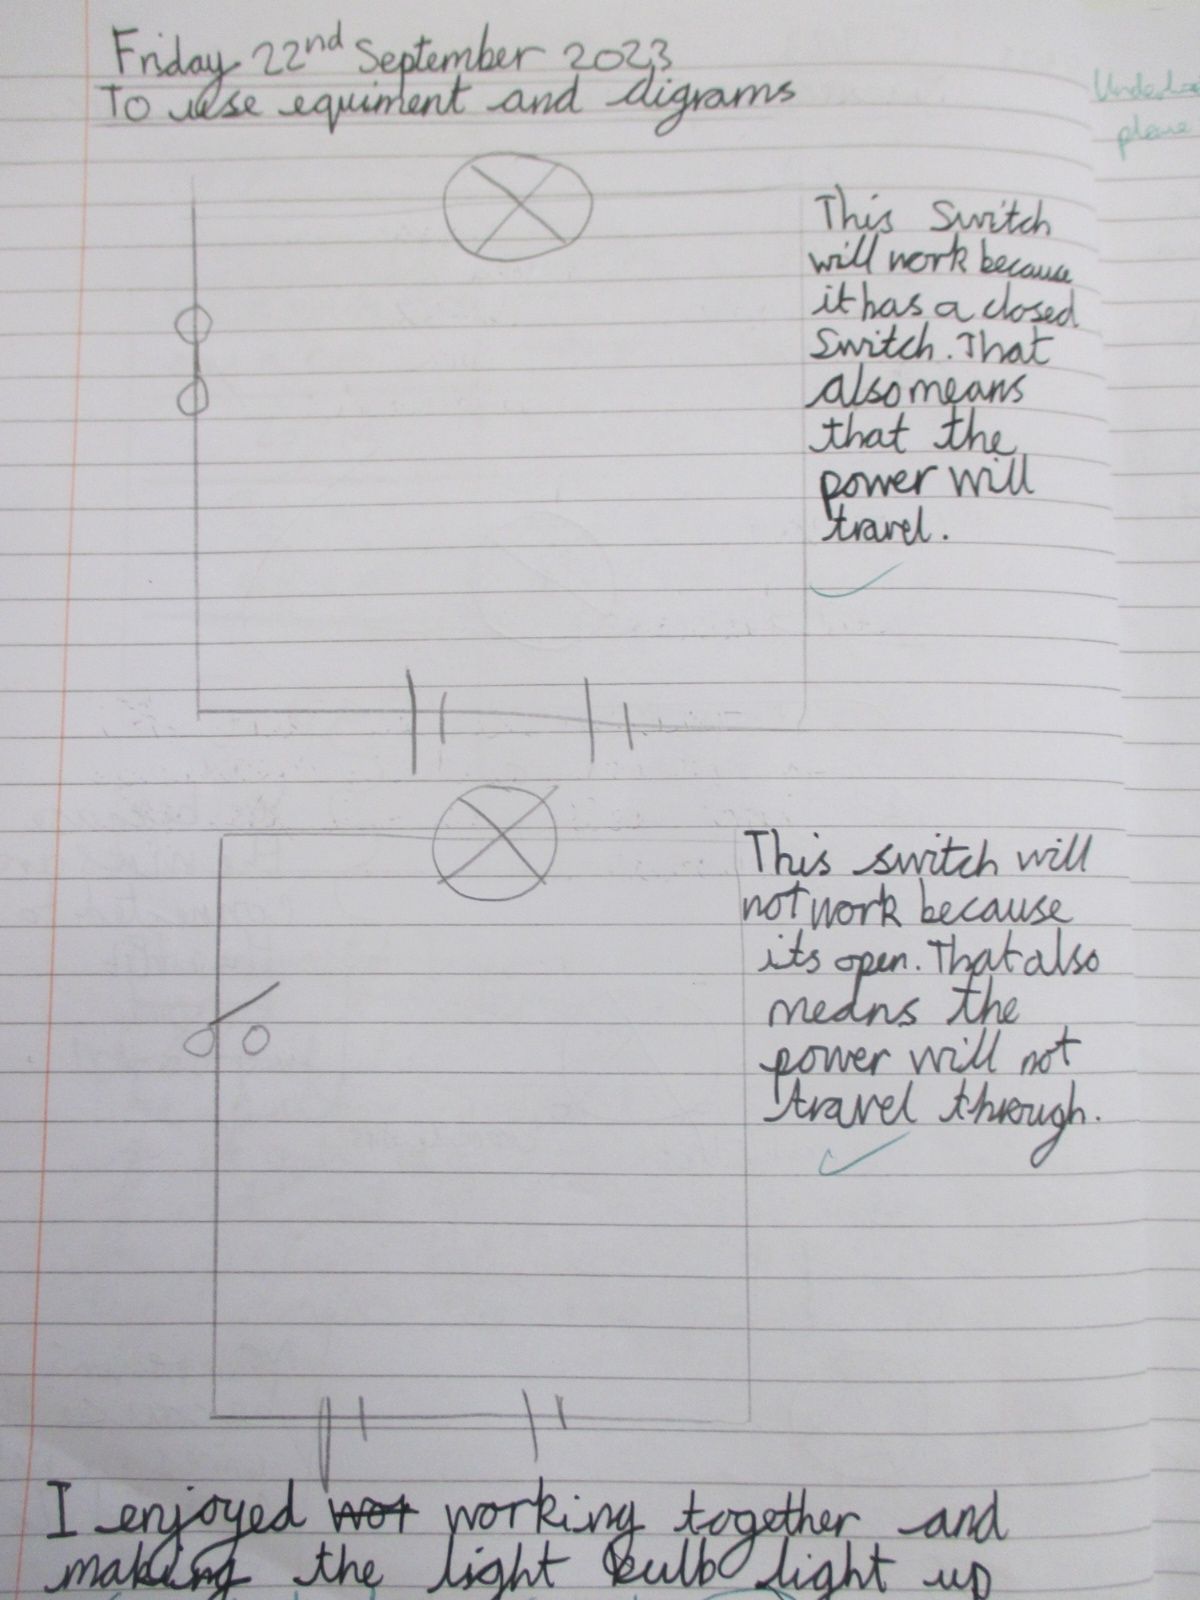 Friday 22nd September 2023
To use equiment and digrams
Underline
please
This Switch
will work because
it has a closed
Switch. That
also means
that the
power will
travel.
This switch will
not work because
its open. That also
means the
power will not
travel through.
I enjoyed wot working together and
making the light bulb light up